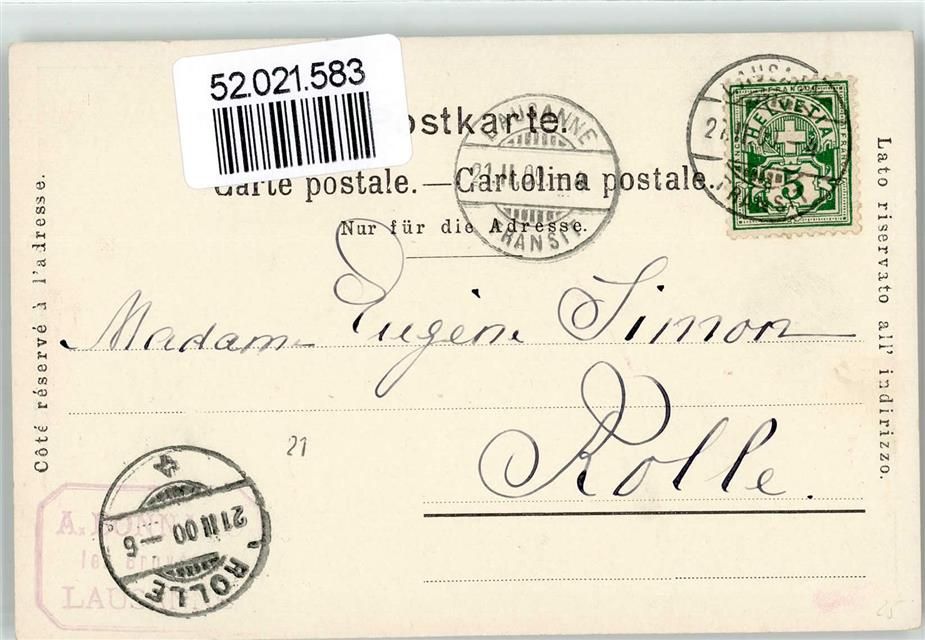 52.021.583
Postkarte.
Carte postale. — Cartolina postale.
Nur für die Adresse.
Côté réservé à l'adresse.
Lato riservato all' indirizzo.
LAUSANNE
21. II. 00
TRANSIT
HELVETIA
FRANCO
5
Madame Eugène Simon
Rolle.
21
21 II 00 — 6
ROLLE
A.
LAUS
25